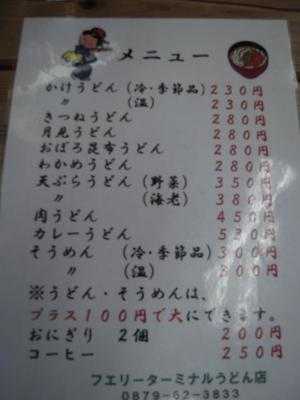 メニュー
かけうどん（冷・季節品）230円
〃（温）230円
きつねうどん 280円
月見うどん 280円
おぼろ昆布うどん 280円
わかめうどん 280円
天ぷらうどん（野菜）350円
〃（海老）380円
肉うどん 450円
カレーうどん 530円
そうめん（冷・季節品）300円
〃（温）300円
※うどん・そうめんは、
プラス100円で大にできます。
おにぎり 2個 200円
コーヒー 250円
フエリーターミナルうどん店
0879-62-3833